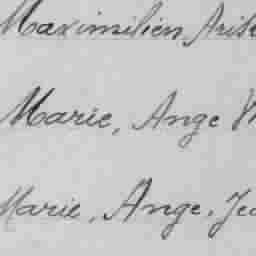 Maximilien, Arist
Marie, Ange
Marie, Ange, Jea